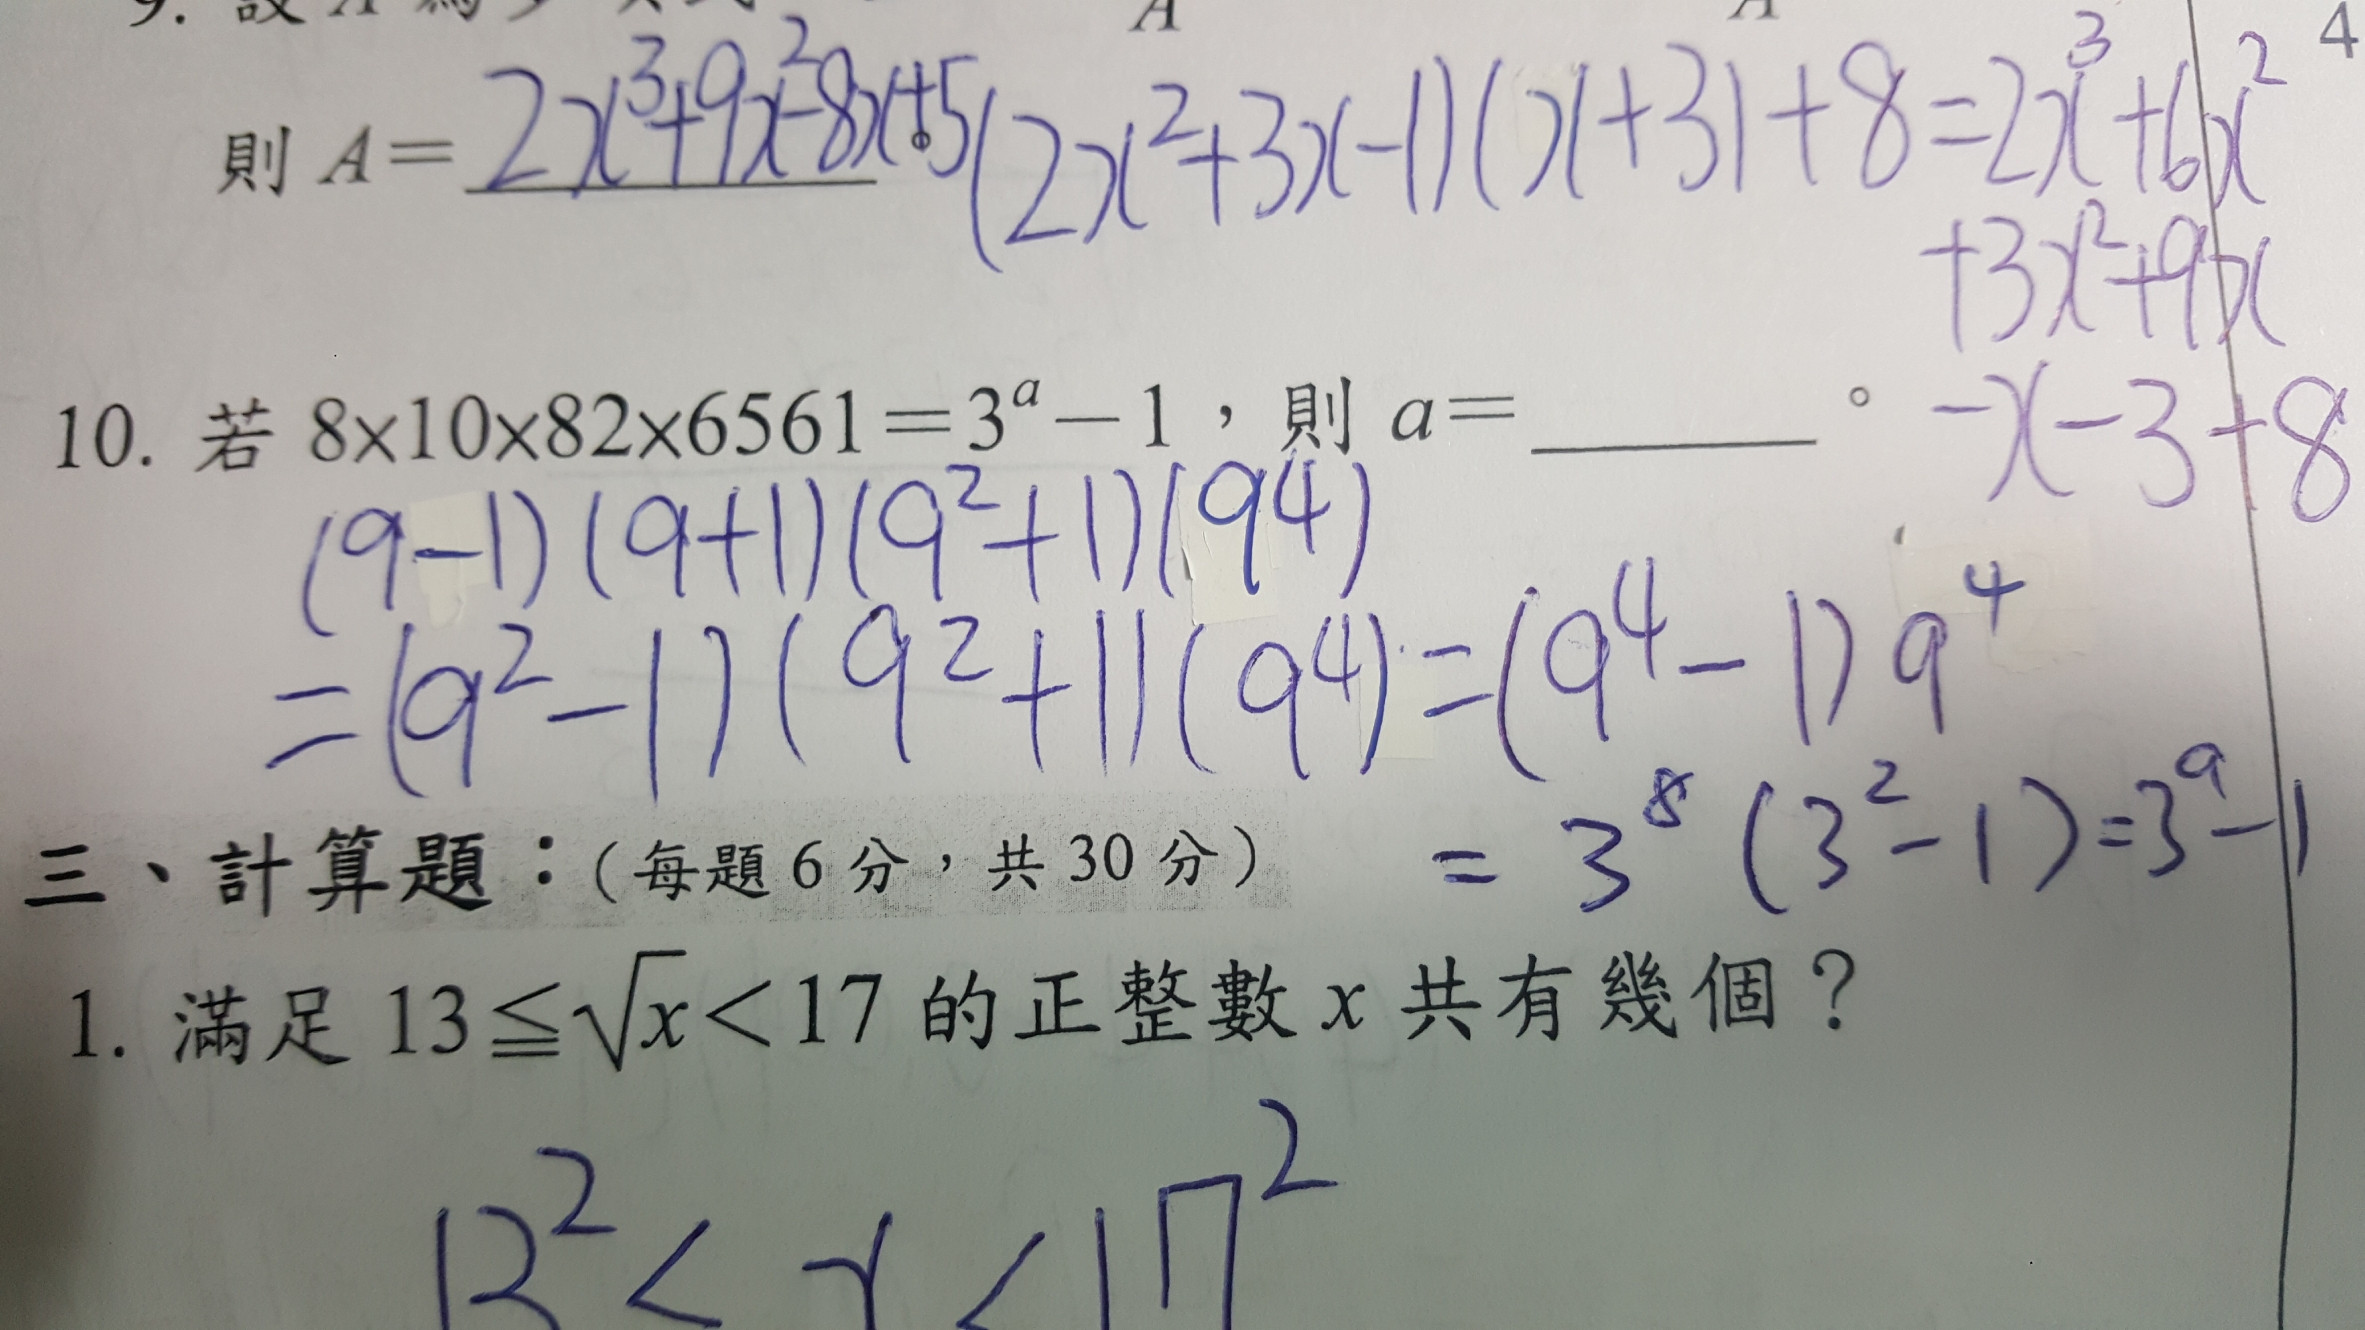 9. 設 A 為多項式
A A 4
則 A= 2x³+9x²-8x+5 。 (2x²+3x-1)(x+3)+8=2x³+6x²
+3x²+9x
-x-3+8
10. 若 8×10×82×6561=3ᵃ-1,則 a=______。
(9-1)(9+1)(9²+1)(9⁴)
=(9²-1)(9²+1)(9⁴)=(9⁴-1)9⁴
=3⁸(3²-1)=3ᵃ-1
三、計算題:(每題 6 分,共 30 分)
1. 滿足 13≦√x<17 的正整數 x 共有幾個?
13²< x <17²